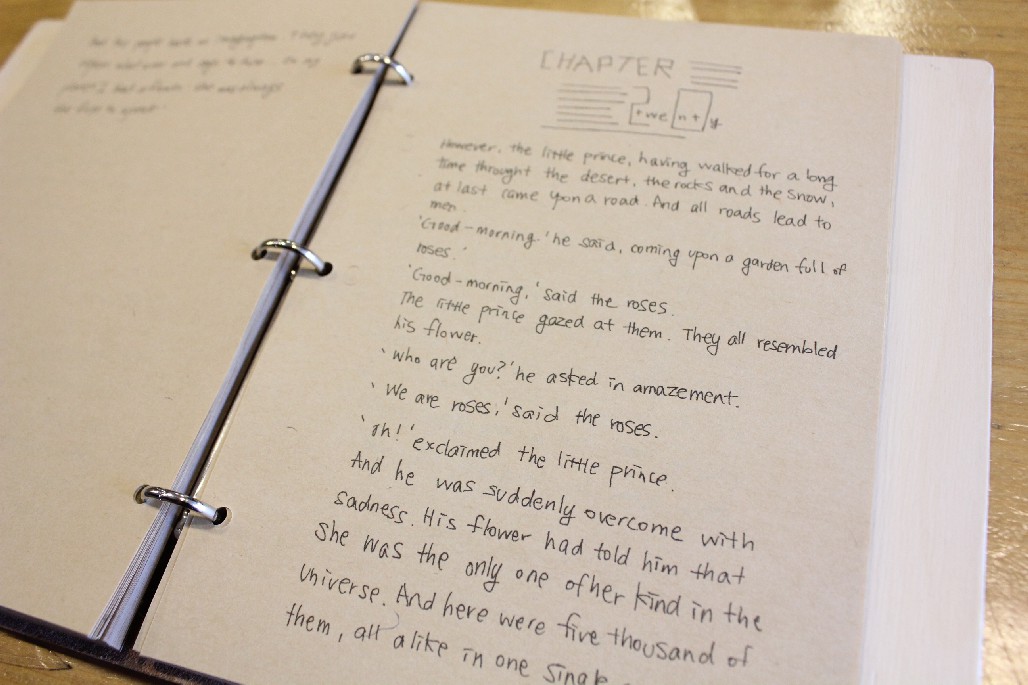 imagination. They
planet I had a flower. she was always
the first to speak.
CHAPTER
twenty
However, the little prince, having walked for a long
time throught the desert, the rocks and the snow,
at last came upon a road. And all roads lead to
men.
'Good-morning.' he said, coming upon a garden full of
roses.'
'Good-morning,' said the roses.
The little prince gazed at them. They all resembled
his flower.
'who are you?' he asked in amazement.
'We are roses,' said the roses.
'oh!' exclaimed the little prince.
And he was suddenly overcome with
sadness. His flower had told him that
she was the only one of her kind in the
universe. And here were five thousand of
them, all alike in one